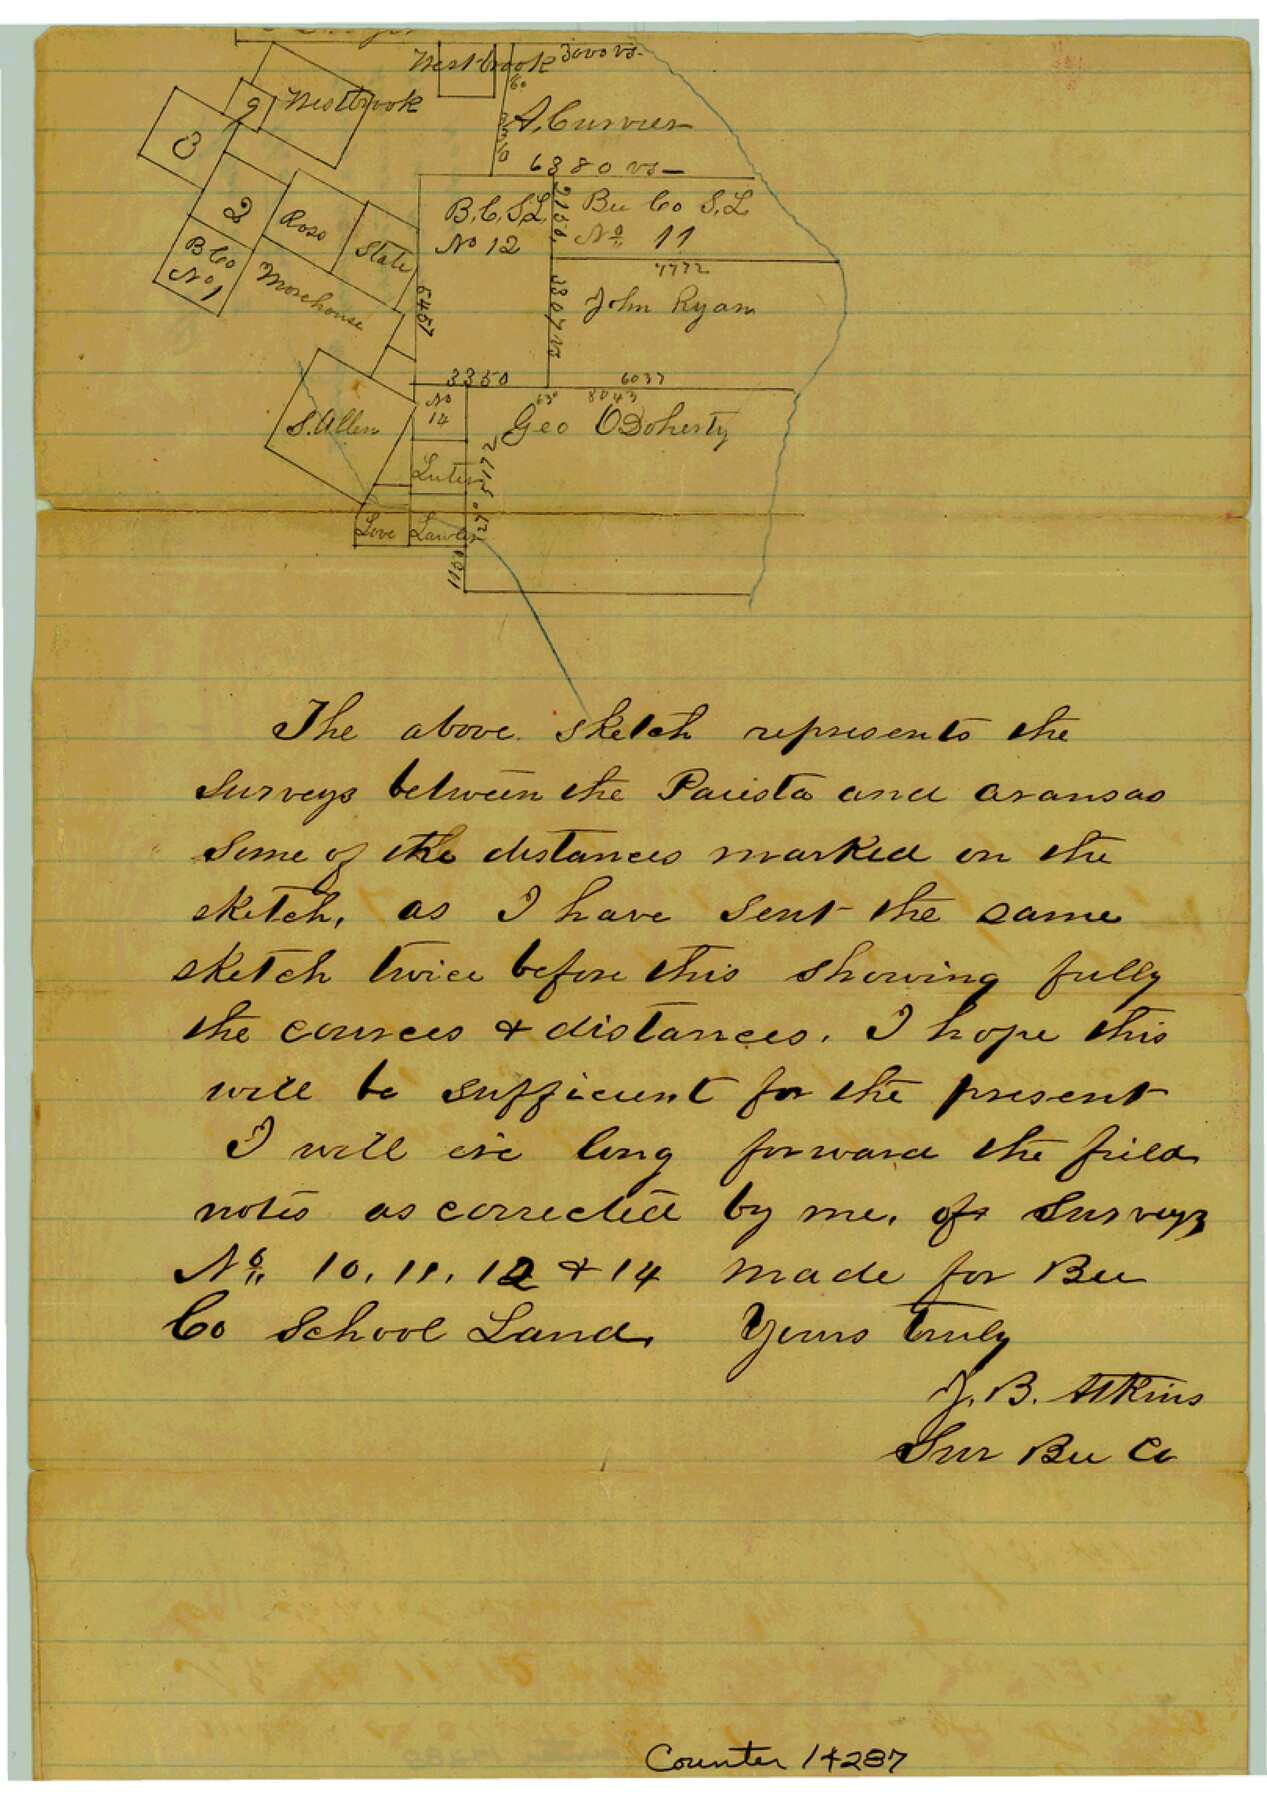 Westbrook 3000 vs.
9 Westbrook
A. Curvier
3
6380 vs
2
Ross
State
B.C.S.L.
No 12
2150
Bee Co S.L.
No 11
B Co
No 1
Morehouse
4772
5457
3307 vs
John Ryan
3350
6037
63°
8043
No
14
S. Allen
Geo ODoherty
5172
Luter
27°
Love
Lawler
1100
The above sketch represents the
surveys between the Paiista and aransas
some of the distances marked on the
sketch, as I have sent the same
sketch twice before this showing fully
the cources & distances. I hope this
will be sufficient for the present
I will ere long forward the field
notes as corrected by me, of surveys
No. 10, 11, 12 & 14 made for Bee
Co School Land, Yours truly
J. B. Atkins
Sur Bee Co
Counter 14287